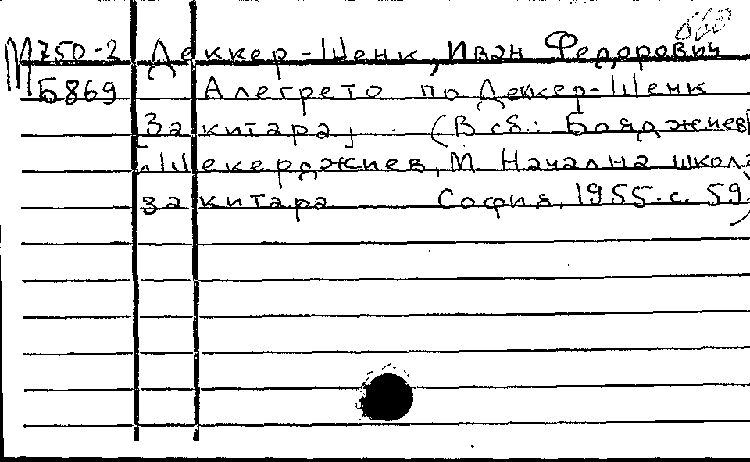 М 750-2 Деккер-Шенк, Иван Федорович
Б869 Алегрето по Деккер-Шенк
[За китара] (В сб.: Бояджиев
Шекерджиев, М. Начална школа
за китара София, 1955. с. 59)